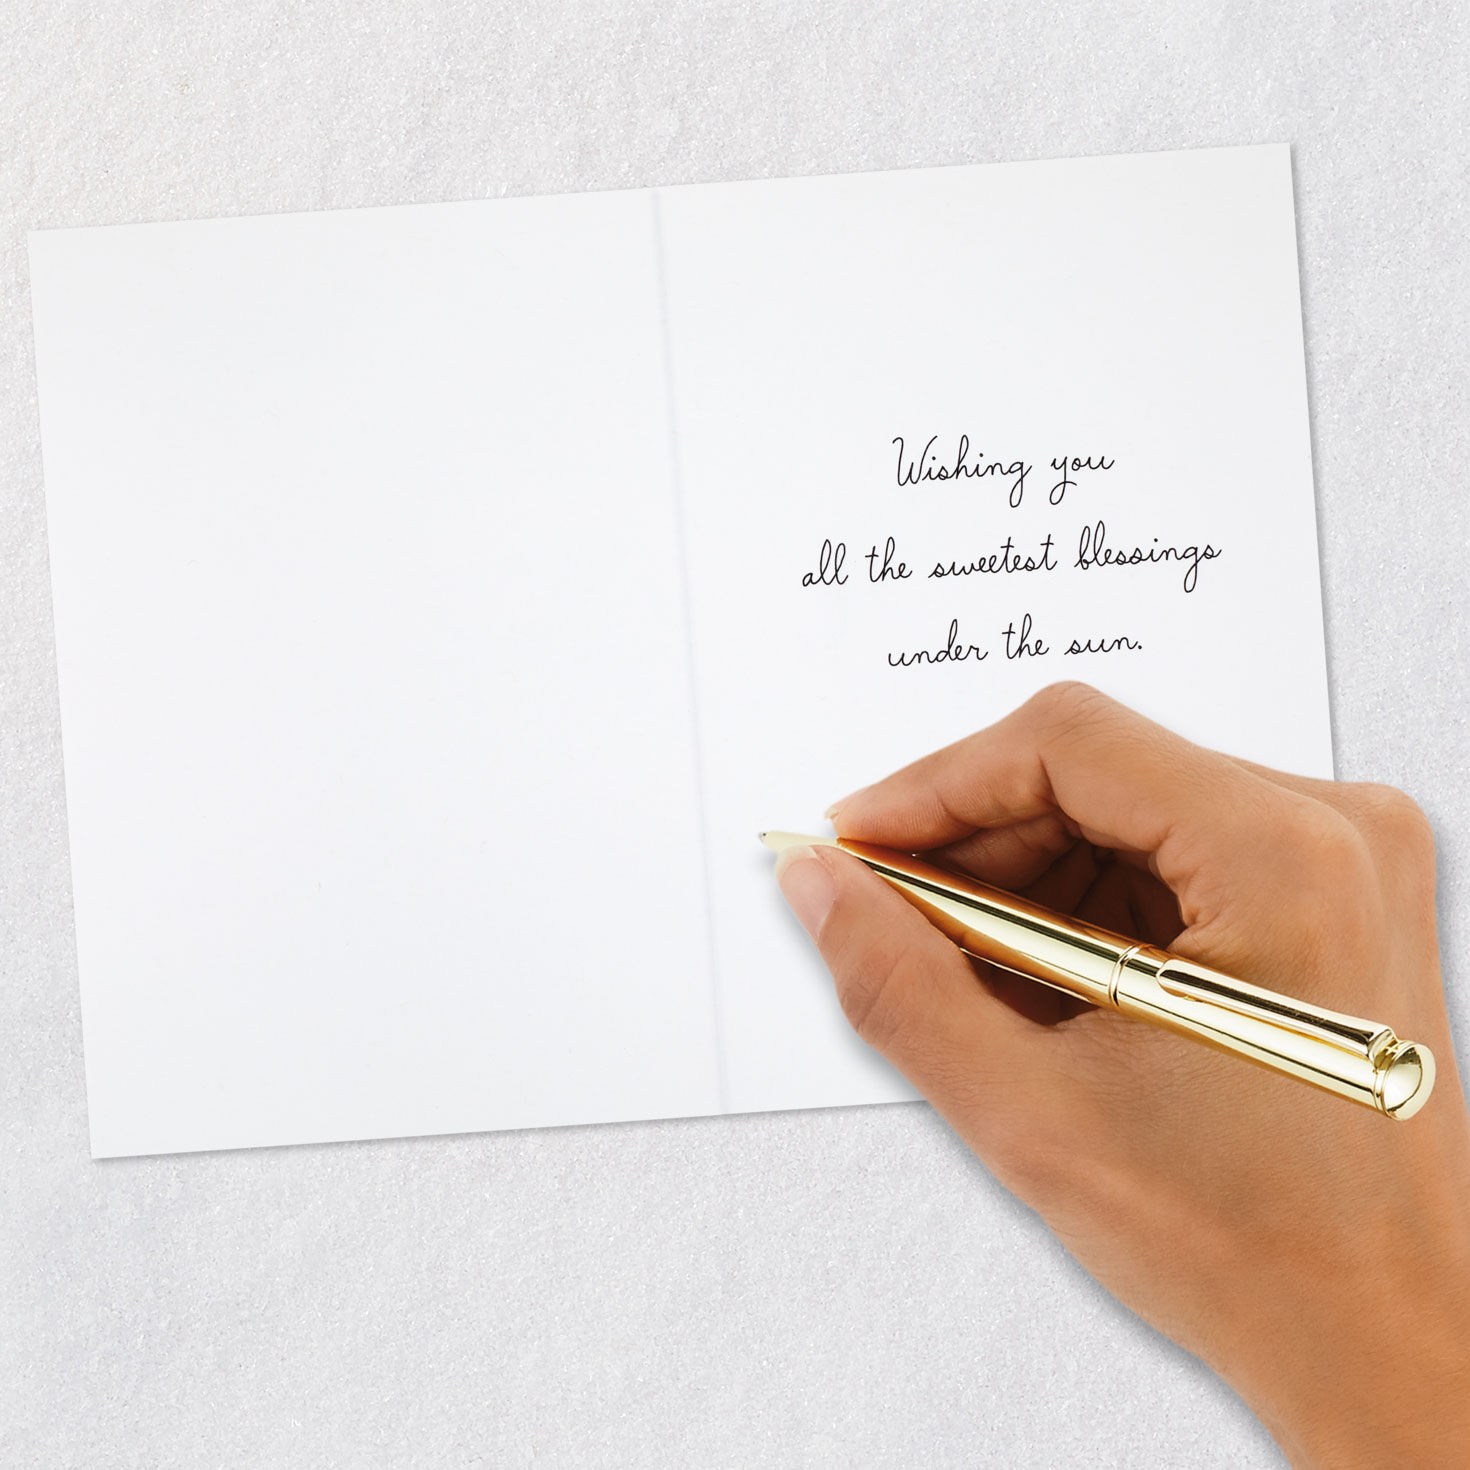 Wishing you
all the sweetest blessings
under the sun.